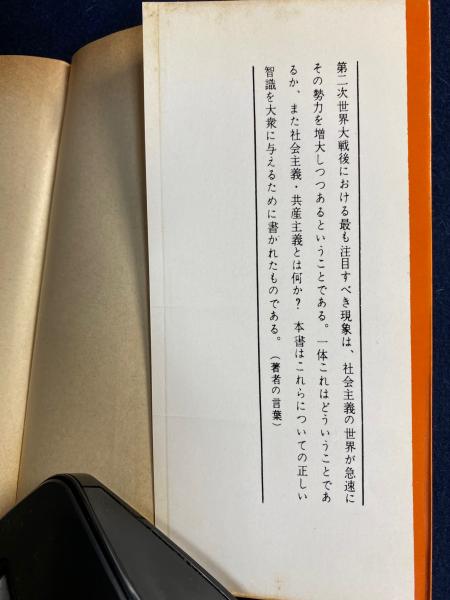 第二次世界大戦後における最も注目すべき現象は、社会主義の世界が急速に
その勢力を増大しつつあるということである。一体これはどういうことであ
るか、また社会主義・共産主義とは何か? 本書はこれらについての正しい
智識を大衆に与えるために書かれたものである。（著者の言葉）